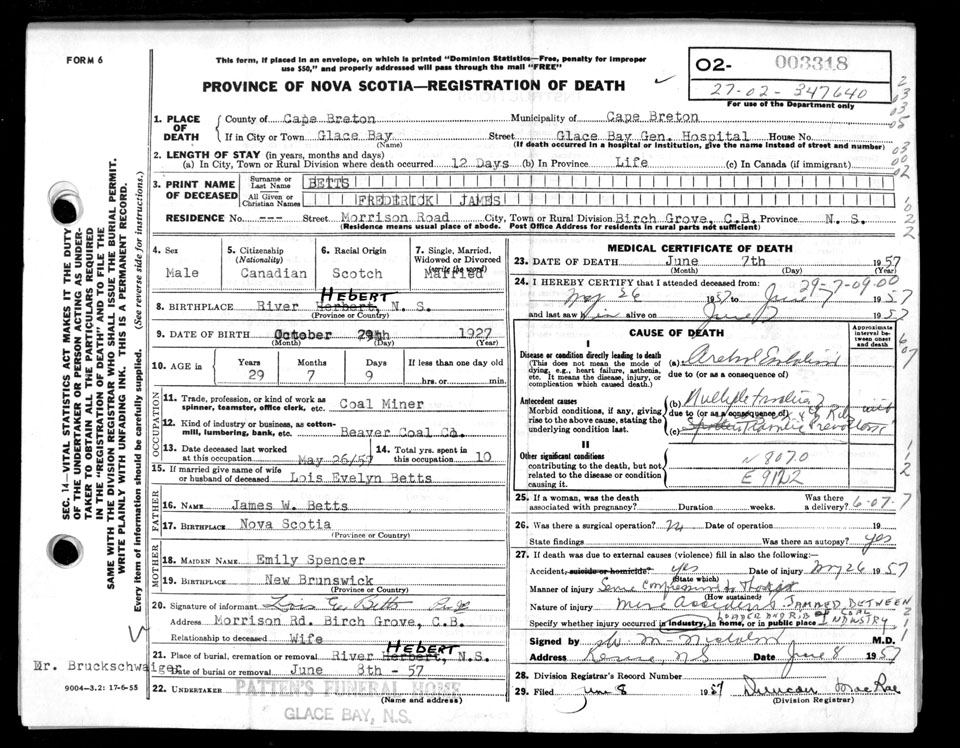 FORM 6
This form, if placed in an envelope, on which is printed "Dominion Statistics—Free, penalty for improper
use $50," and properly addressed will pass through the mail "FREE"
PROVINCE OF NOVA SCOTIA—REGISTRATION OF DEATH
O2- 003318
27-02-347640
For use of the Department only
1. PLACE OF DEATH
County of Cape Breton Municipality of Cape Breton
If in City or Town Glace Bay Street Glace Bay Gen. Hospital House No.
(Name) (If death occurred in a hospital or institution, give the name instead of street and number)
2. LENGTH OF STAY (in years, months and days)
(a) In City, Town or Rural Division where death occurred 12 Days (b) In Province Life (c) In Canada (if immigrant)
3. PRINT NAME OF DECEASED
Surname or Last Name BETTS
All Given or Christian Names FREDERICK JAMES
RESIDENCE No. --- Street Morrison Road City, Town or Rural Division Birch Grove, C.B. Province N. S.
(Residence means usual place of abode. Post Office Address for residents in rural parts not sufficient)
4. Sex Male
5. Citizenship (Nationality) Canadian
6. Racial Origin Scotch
7. Single, Married, Widowed or Divorced (write the word) Married
HEBERT
8. BIRTHPLACE River Herbert, N. S.
(Province or Country)
9. DATE OF BIRTH October 29th 1927
(Month) (Day) (Year)
10. AGE in Years 29 Months 7 Days 9 If less than one day old hrs. or min.
OCCUPATION
11. Trade, profession, or kind of work as spinner, teamster, office clerk, etc. Coal Miner
12. Kind of industry or business, as cotton-mill, lumbering, bank, etc. Beaver Coal Co.
13. Date deceased last worked at this occupation May 26/57
14. Total yrs. spent in this occupation 10
15. If married give name of wife or husband of deceased Lois Evelyn Betts
FATHER
16. NAME James W. Betts
17. BIRTHPLACE Nova Scotia
(Province or Country)
MOTHER
18. MAIDEN NAME Emily Spencer
19. BIRTHPLACE New Brunswick
(Province or Country)
20. Signature of informant Lois E. Betts
Address Morrison Rd. Birch Grove, C.B.
Relationship to deceased Wife
HEBERT
21. Place of burial, cremation or removal River Herbert, N.S.
Date of burial or removal June 8th - 57
22. UNDERTAKER PATTEN'S FUNERAL HOME
(Name and address)
GLACE BAY, N.S.
Mr. Bruckschwaiger
9004-3.2: 17-6-55
SEC. 14—VITAL STATISTICS ACT MAKES IT THE DUTY
OF THE UNDERTAKER OR PERSON ACTING AS UNDER-
TAKER TO OBTAIN ALL THE PARTICULARS REQUIRED
IN THE "REGISTRATION OF DEATH" AND TO FILE THE
SAME WITH THE DIVISION REGISTRAR WHO SHALL ISSUE THE BURIAL PERMIT.
WRITE PLAINLY WITH UNFADING INK. THIS IS A PERMANENT RECORD.
Every item of information should be carefully supplied. (See reverse side for instructions.)
MEDICAL CERTIFICATE OF DEATH
23. DATE OF DEATH June 7th 1957
(Month) (Day) (Year)
29-7-09.00
24. I HEREBY CERTIFY that I attended deceased from:
May 26 1957 to June 7 1957
and last saw him alive on June 7 1957
CAUSE OF DEATH
Approximate interval between onset and death
I
Disease or condition directly leading to death
(This does not mean the mode of dying, e.g., heart failure, asthenia, etc. It means the disease, injury, or complication which caused death.)
(a)
due to (or as a consequence of)
Antecedent causes
Morbid conditions, if any, giving rise to the above cause, stating the underlying condition last.
(b) Multiple
due to (or as a consequence of)
(c)
II
Other significant conditions
contributing to the death, but not related to the disease or condition causing it.
N 807.0
E 912.2
25. If a woman, was the death associated with pregnancy? Duration weeks. Was there a delivery? 6-07-7
26. Was there a surgical operation? No Date of operation 19
State findings Was there an autopsy? yes
27. If death was due to external causes (violence) fill in also the following:
Accident, suicide or homicide? yes Date of injury May 26 1957
(State which)
Manner of injury
(How sustained)
Nature of injury Mine Accident JAMMED BETWEEN
LOADER AND RIB OF COAL
Specify whether injury occurred in industry, in home, or in public place INDUSTRY
Signed by M.D.
Address N.S. Date June 8 1957
28. Division Registrar's Record Number
29. Filed June 8 1957 Duncan MacRae
(Division Registrar)